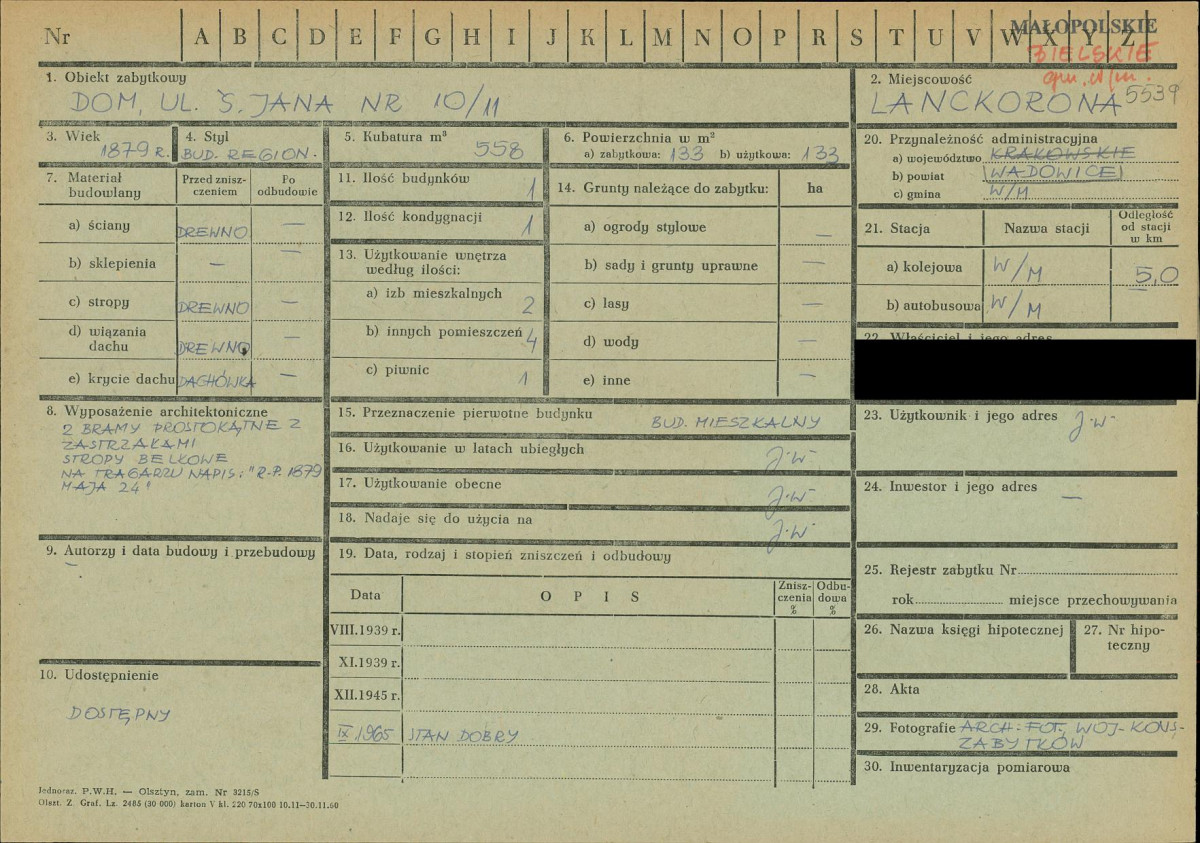 Nr A B C D E F G H I J K L M N O P R S T U V W X Y Z
MAŁOPOLSKIE
BIELSKIE
gm. w/m.
1. Obiekt zabytkowy
DOM, UL. Ś. JANA NR 10/11
2. Miejscowość
LANCKORONA 5539
3. Wiek
1879 R.
4. Styl
BUD. REGION.
5. Kubatura m³
558
6. Powierzchnia w m²
a) zabytkowa: 133 b) użytkowa: 133
7. Materiał budowlany
Przed zniszczeniem
Po odbudowie
a) ściany DREWNO —
b) sklepienia — —
c) stropy DREWNO —
d) wiązania dachu DREWNO —
e) krycie dachu DACHÓWKA —
8. Wyposażenie architektoniczne
2 BRAMY PROSTOKĄTNE Z
ZASTRZAŁAMI
STROPY BELKOWE
NA TRAGARZU NAPIS: "R.P. 1879
MAJA 24"
9. Autorzy i data budowy i przebudowy
—
10. Udostępnienie
DOSTĘPNY
11. Ilość budynków
1
12. Ilość kondygnacji
1
13. Użytkowanie wnętrza
według ilości:
a) izb mieszkalnych 2
b) innych pomieszczeń 4
c) piwnic 1
14. Grunty należące do zabytku: ha
a) ogrody stylowe —
b) sady i grunty uprawne —
c) lasy —
d) wody —
e) inne —
15. Przeznaczenie pierwotne budynku
BUD. MIESZKALNY
16. Użytkowanie w latach ubiegłych
J.W.
17. Użytkowanie obecne
J.W.
18. Nadaje się do użycia na
J.W.
19. Data, rodzaj i stopień zniszczeń i odbudowy
Data OPIS Zniszczenia % Odbudowa %
VIII.1939 r.
XI.1939 r.
XII.1945 r.
IX.1965 STAN DOBRY
20. Przynależność administracyjna
a) województwo KRAKOWSKIE
b) powiat (WADOWICE)
c) gmina W/M
21. Stacja Nazwa stacji Odległość od stacji w km
a) kolejowa W/M 5,0
b) autobusowa W/M
22. Właściciel i jego adres
23. Użytkownik i jego adres
J.W.
24. Inwestor i jego adres
—
25. Rejestr zabytku Nr
rok miejsce przechowywania
26. Nazwa księgi hipotecznej
27. Nr hipoteczny
28. Akta
29. Fotografie ARCH. FOT. WOJ. KONS.
ZABYTKÓW
30. Inwentaryzacja pomiarowa
Jednoraz. P.W.H. — Olsztyn, zam. Nr 3215/S
Olszt. Z. Graf. Lz. 2485 (30 000) karton V kl. 220 70x100 10.11—30.11.60